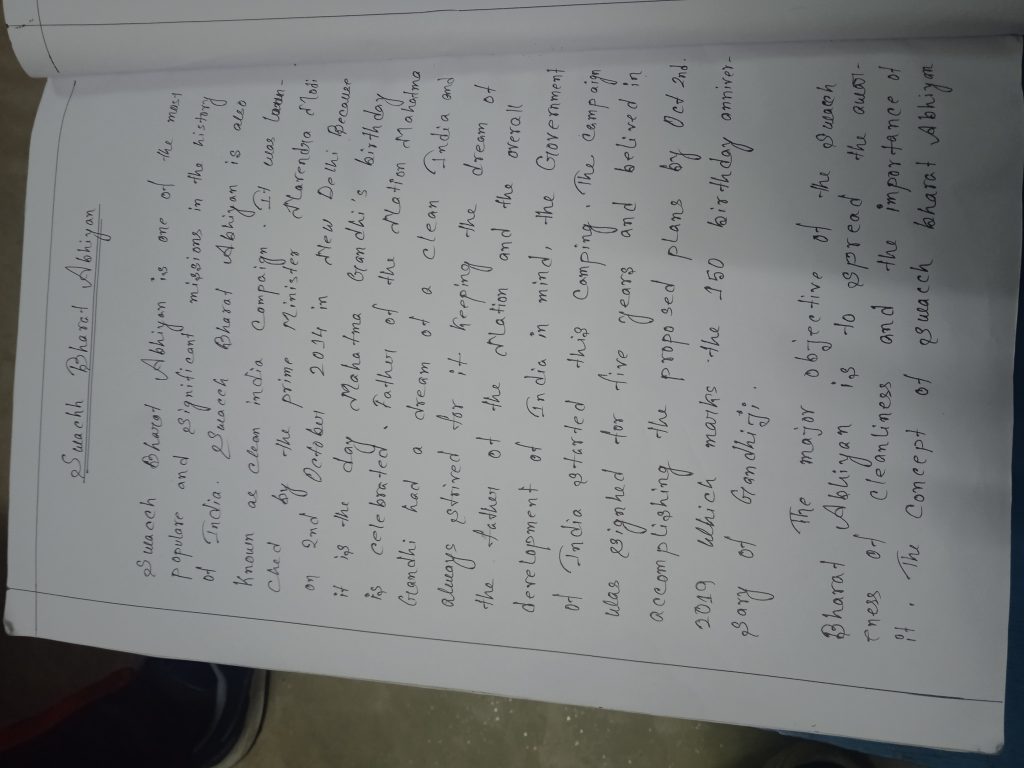 Swachh Bharat Abhiyan
Swacch Bharat Abhiyan is one of the most
populare and significant missions in the history
of India. Swacch Bharat Abhiyan is also
known as clean india compaign. It was laun-
ched by the prime Minister Narendra Modi
on 2nd October 2014 in New Delhi Because
it is the day Mahatma Gandhi's birthday
is celebrated. Father of the Nation Mahatma
Gandhi had a dream of a clean India and
always strived for it keeping the dream of
the father of the Nation and the overall
development of India in mind, the Government
of India started this comping. The campaign
was signhed for five years and belived in
accomplishing the proposed plans by Oct 2nd.
2019 which marks the 150 birthday anniver-
sary of Gandhiji.
The major objective of the swach
Bharat Abhiyan is to spread the awar-
eness of cleanliness and the importance of
it. The concept of swach bharat Abhiyan